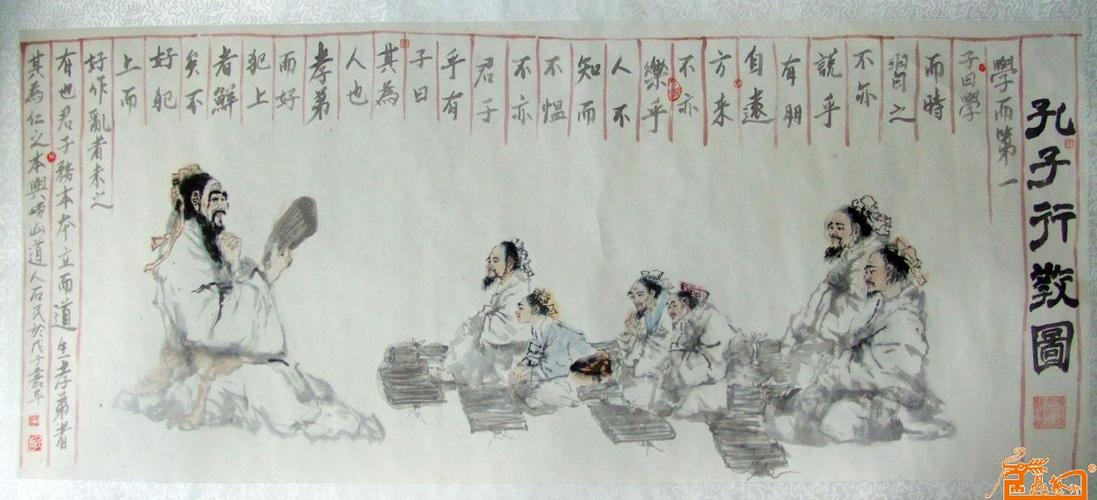 孔子行教圖
學而第一
子曰學
而時
習之
不亦
說乎
有朋
自遠
方來
不亦
樂乎
人不
知而
不愠
不亦
君子
乎有
子曰
其為
人也
孝弟
而好
犯上
者鮮
矣不
好犯
上而
好作亂者未之
有也君子務本本立而道生孝弟者
其為仁之本與嶗山道人石民於戊子